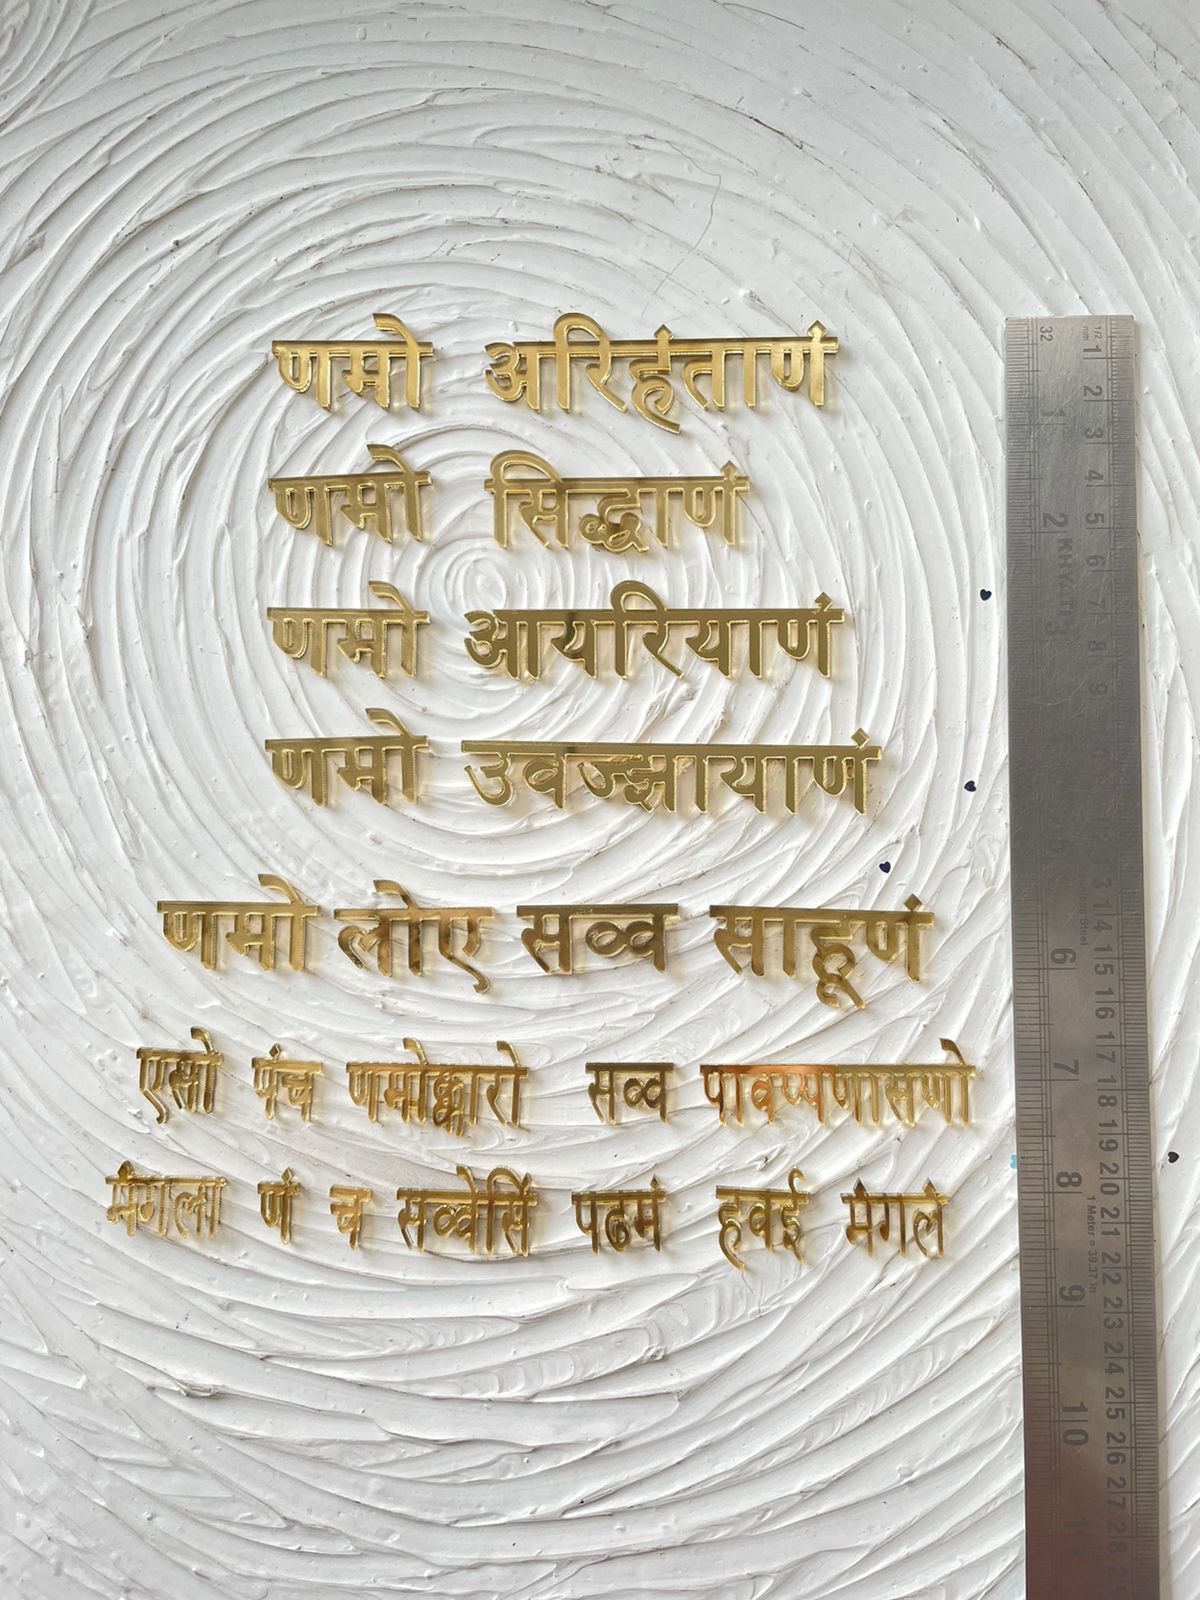 णमो अरिहंताणं
णमो सिद्धाणं
णमो आयरियाणं
णमो उवज्झायाणं
णमो लोए सव्व साहूणं
एसो पंच णमोक्कारो सव्व पावप्पणासणो
मंगला णं च सव्वेसिं पढमं हवई मंगलं
1/2 mm 1 2 3 4 5 6 7 8 9 10 11 12 13 14 15 16 17 18 19 20 21 22 23 24 25 26 27 28
32 1 2 6 7 8 9 10 11
1 Meter = 39.37 in